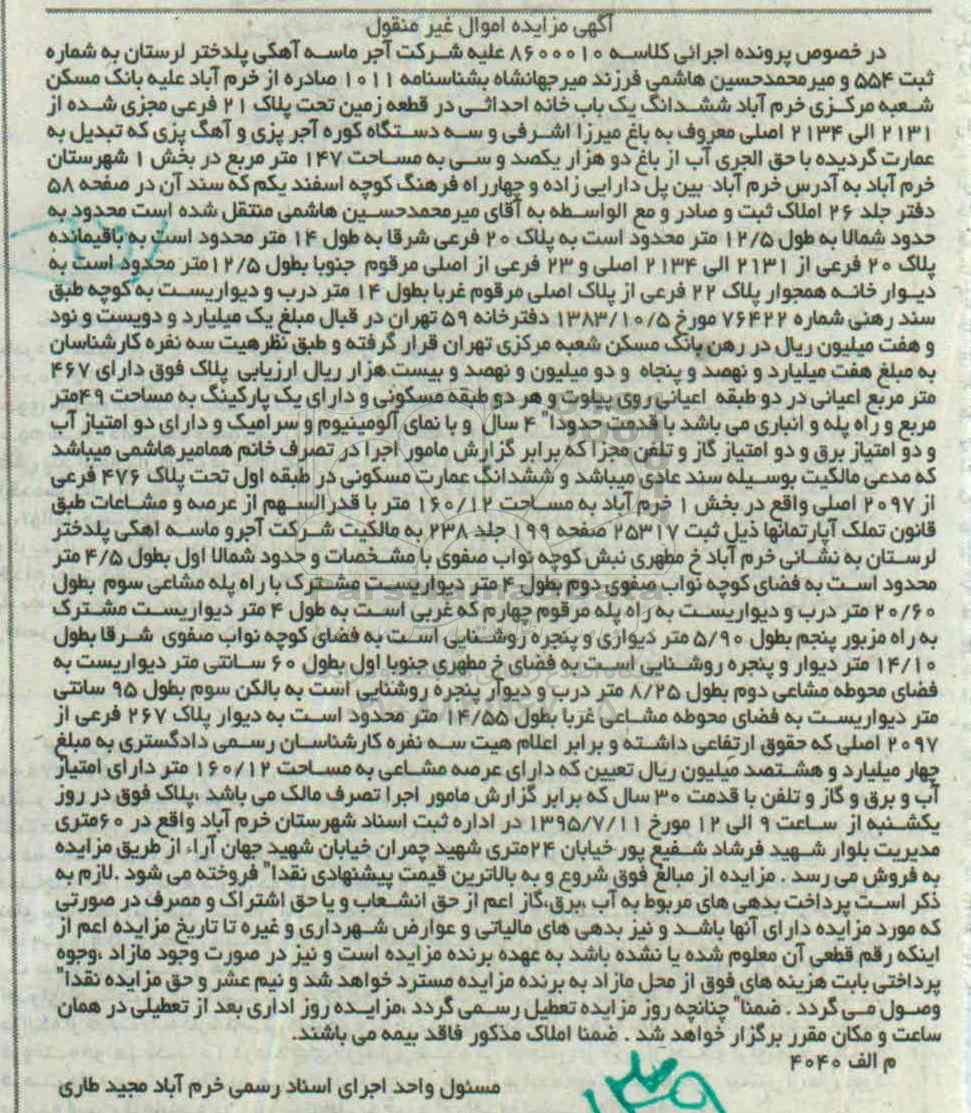 آگهی مزایده اموال غیر منقول
در خصوص پرونده اجرائی کلاسه ۸۶۰۰۰۱۰ علیه شرکت آجر ماسه آهکی پلدختر لرستان به شماره
ثبت ۵۵۴ و میرمحمدحسین هاشمی فرزند میرجهانشاه بشناسنامه ۱۰۱۱ صادره از خرم آباد علیه بانک مسکن
شعبه مرکزی خرم آباد ششدانگ یک باب خانه احداثی در قطعه زمین تحت پلاک ۲۱ فرعی مجزی شده از
۲۱۳۱ الی ۲۱۳۴ اصلی معروف به باغ میرزا اشرفی و سه دستگاه کوره آجر پزی و آهگ پزی که تبدیل به
عمارت گردیده با حق الجری آب از باغ دو هزار یکصد و سی به مساحت ۱۴۷ متر مربع در بخش ۱ شهرستان
خرم آباد به آدرس خرم آباد بین پل دارایی زاده و چهارراه فرهنگ کوچه اسفند یکم که سند آن در صفحه ۵۸
دفتر جلد ۲۶ املاک ثبت و صادر و مع الواسطه به آقای میرمحمدحسین هاشمی منتقل شده است محدود به
حدود شمالا به طول ۱۲/۵ متر محدود است به پلاک ۲۰ فرعی شرقا به طول ۱۴ متر محدود است به باقیمانده
پلاک ۲۰ فرعی از ۲۱۳۱ الی ۲۱۳۴ اصلی و ۲۳ فرعی از اصلی مرقوم جنوبا بطول ۱۲/۵متر محدود است به
دیوار خانه همجوار پلاک ۲۲ فرعی از پلاک اصلی مرقوم غربا بطول ۱۴ متر درب و دیواریست به کوچه طبق
سند رهنی شماره ۷۶۴۲۲ مورخ ۱۳۸۳/۱۰/۵ دفترخانه ۵۹ تهران در قبال مبلغ یک میلیارد و دویست و نود
و هفت میلیون ریال در رهن بانک مسکن شعبه مرکزی تهران قرار گرفته و طبق نظرهیت سه نفره کارشناسان
به مبلغ هفت میلیارد و نهصد و پنجاه و دو میلیون و نهصد و بیست هزار ریال ارزیابی پلاک فوق دارای ۴۶۷
متر مربع اعیانی در دو طبقه اعیانی روی پیلوت و هر دو طبقه مسکونی و دارای یک پارکینگ به مساحت ۴۹متر
مربع و راه پله و انباری می باشد با قدمت حدودا" ۴ سال و با نمای آلومینیوم و سرامیک و دارای دو امتیاز آب
و دو امتیاز برق و دو امتیاز گاز و تلفن مجزا که برابر گزارش مامور اجرا در تصرف خانم همامیرهاشمی میباشد
که مدعی مالکیت بوسیله سند عادی میباشد و ششدانگ عمارت مسکونی در طبقه اول تحت پلاک ۴۷۶ فرعی
از ۲۰۹۷ اصلی واقع در بخش ۱ خرم آباد به مساحت ۱۶۰/۱۲ متر با قدرالسهم از عرصه و مشاعات طبق
قانون تملک آپارتمانها ذیل ثبت ۲۵۳۱۷ صفحه ۱۹۹ جلد ۲۳۸ به مالکیت شرکت آجرو ماسه اهکی پلدختر
لرستان به نشانی خرم آباد خ مطهری نبش کوچه نواب صفوی با مشخصات و حدود شمالا اول بطول ۴/۵ متر
محدود است به فضای کوچه نواب صفوی دوم بطول ۴ متر دیواریست مشترک با راه پله مشاعی سوم بطول
۲۰/۶۰ متر درب و دیواریست به راه پله مرقوم چهارم که غربی است به طول ۴ متر دیواریست مشترک
به راه مزبور پنجم بطول ۵/۹۰ متر دیواری و پنجره روشنایی است به فضای کوچه نواب صفوی شرقا بطول
۱۴/۱۰ متر دیوار و پنجره روشنایی است به فضای خ مطهری جنوبا اول بطول ۶۰ سانتی متر دیواریست به
فضای محوطه مشاعی دوم بطول ۸/۲۵ متر درب و دیوار پنجره روشنایی است به بالکن سوم بطول ۹۵ سانتی
متر دیواریست به فضای محوطه مشاعی غربا بطول ۱۴/۵۵ متر محدود است به دیوار پلاک ۲۶۷ فرعی از
۲۰۹۷ اصلی که حقوق ارتفاعی داشته و برابر اعلام هیت سه نفره کارشناسان رسمی دادگستری به مبلغ
چهار میلیارد و هشتصد میلیون ریال تعیین که دارای عرصه مشاعی به مساحت ۱۶۰/۱۲ متر دارای امتیاز
آب و برق و گاز و تلفن با قدمت ۳۰ سال که برابر گزارش مامور اجرا تصرف مالک می باشد ،پلاک فوق در روز
یکشنبه از ساعت ۹ الی ۱۲ مورخ ۱۳۹۵/۷/۱۱ در اداره ثبت اسناد شهرستان خرم آباد واقع در ۶۰متری
مدیریت بلوار شهید فرشاد شفیع پور خیابان ۲۴متری شهید چمران خیابان شهید جهان آراء از طریق مزایده
به فروش می رسد . مزایده از مبالغ فوق شروع و به بالاترین قیمت پیشنهادی نقدا" فروخته می شود .لازم به
ذکر است پرداخت بدهی های مربوط به آب ،برق،گاز اعم از حق انشعاب و یا حق اشتراک و مصرف در صورتی
که مورد مزایده دارای آنها باشد و نیز بدهی های مالیاتی و عوارض شهرداری و غیره تا تاریخ مزایده اعم از
اینکه رقم قطعی آن معلوم شده یا نشده باشد به عهده برنده مزایده است و نیز در صورت وجود مازاد ،وجوه
پرداختی بابت هزینه های فوق از محل مازاد به برنده مزایده مسترد خواهد شد و نیم عشر و حق مزایده نقدا"
وصول می گردد . ضمنا" چنانچه روز مزایده تعطیل رسمی گردد ،مزایده روز اداری بعد از تعطیلی در همان
ساعت و مکان مقرر برگزار خواهد شد . ضمنا املاک مذکور فاقد بیمه می باشند.
م الف ۴۰۴۰
مسئول واحد اجرای اسناد رسمی خرم آباد مجید طاری